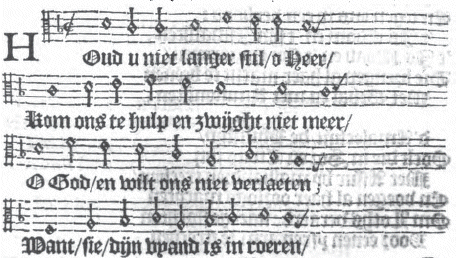 HOud u niet langer stil/o Heer/
Kom ons te hulp en zwijght niet meer/
O God/en wilt ons niet verlaeten;
Want/sie/dijn vyand is in roeren/